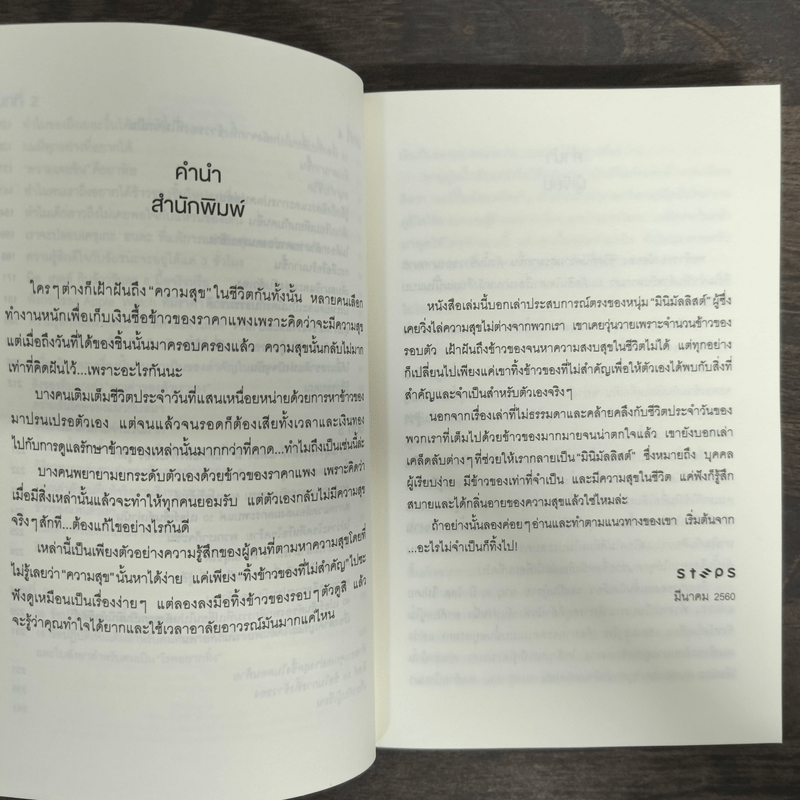 คำนำ
สำนักพิมพ์
ใครๆต่างก็เฝ้าฝันถึง "ความสุข" ในชีวิตกันทั้งนั้น หลายคนเลือก
ทำงานหนักเพื่อเก็บเงินซื้อข้าวของราคาแพงเพราะคิดว่าจะมีความสุข
แต่เมื่อถึงวันที่ได้ของชิ้นนั้นมาครอบครองแล้ว ความสุขนั้นกลับไม่มาก
เท่าที่คิดฝันไว้...เพราะอะไรกันนะ
บางคนเติมเต็มชีวิตประจำวันที่แสนเหนื่อยหน่ายด้วยการหาข้าวของ
มาปรนเปรอตัวเอง แต่จนแล้วจนรอดก็ต้องเสียทั้งเวลาและเงินทอง
ไปกับการดูแลรักษาข้าวของเหล่านั้นมากกว่าที่คาด...ทำไมถึงเป็นเช่นนี้ล่ะ
บางคนพยายามยกระดับตัวเองด้วยข้าวของราคาแพง เพราะคิดว่า
เมื่อมีสิ่งเหล่านั้นแล้วจะทำให้ทุกคนยอมรับ แต่ตัวเองกลับไม่มีความสุข
จริงๆสักที...ต้องแก้ไขอย่างไรกันดี
เหล่านี้เป็นเพียงตัวอย่างความรู้สึกของผู้คนที่ตามหาความสุขโดยที่
ไม่รู้เลยว่า "ความสุข" นั้นหาได้ง่าย แค่เพียง "ทิ้งข้าวของที่ไม่สำคัญ" ไปซะ
ฟังดูเหมือนเป็นเรื่องง่ายๆ แต่ลองลงมือทิ้งข้าวของรอบๆตัวดูสิ แล้ว
จะรู้ว่าคุณทำใจได้ยากและใช้เวลาอาลัยอาวรณ์มันมากแค่ไหน
หนังสือเล่มนี้บอกเล่าประสบการณ์ตรงของหนุ่ม "มินิมัลลิสต์" ผู้ซึ่ง
เคยวิ่งไล่ความสุขไม่ต่างจากพวกเรา เขาเคยวุ่นวายเพราะจำนวนข้าวของ
รอบตัว เฝ้าฝันถึงข้าวของจนหาความสงบสุขในชีวิตไม่ได้ แต่ทุกอย่าง
ก็เปลี่ยนไปเพียงแค่เขาทิ้งข้าวของที่ไม่สำคัญเพื่อให้ตัวเองได้พบกับสิ่งที่
สำคัญและจำเป็นสำหรับตัวเองจริงๆ
นอกจากเรื่องเล่าที่ไม่ธรรมดาและคล้ายคลึงกับชีวิตประจำวันของ
พวกเราที่เต็มไปด้วยข้าวของมากมายจนน่าตกใจแล้ว เขายังบอกเล่า
เคล็ดลับต่างๆที่ช่วยให้เรากลายเป็น "มินิมัลลิสต์" ซึ่งหมายถึง บุคคล
ผู้เรียบง่าย มีข้าวของเท่าที่จำเป็น และมีความสุขในชีวิต แค่ฟังก็รู้สึก
สบายและได้กลิ่นอายของความสุขแล้วใช่ไหมล่ะ
ถ้าอย่างนั้นลองค่อยๆอ่านและทำตามแนวทางของเขา เริ่มต้นจาก
...อะไรไม่จำเป็นก็ทิ้งไป!
steps
มีนาคม 2560